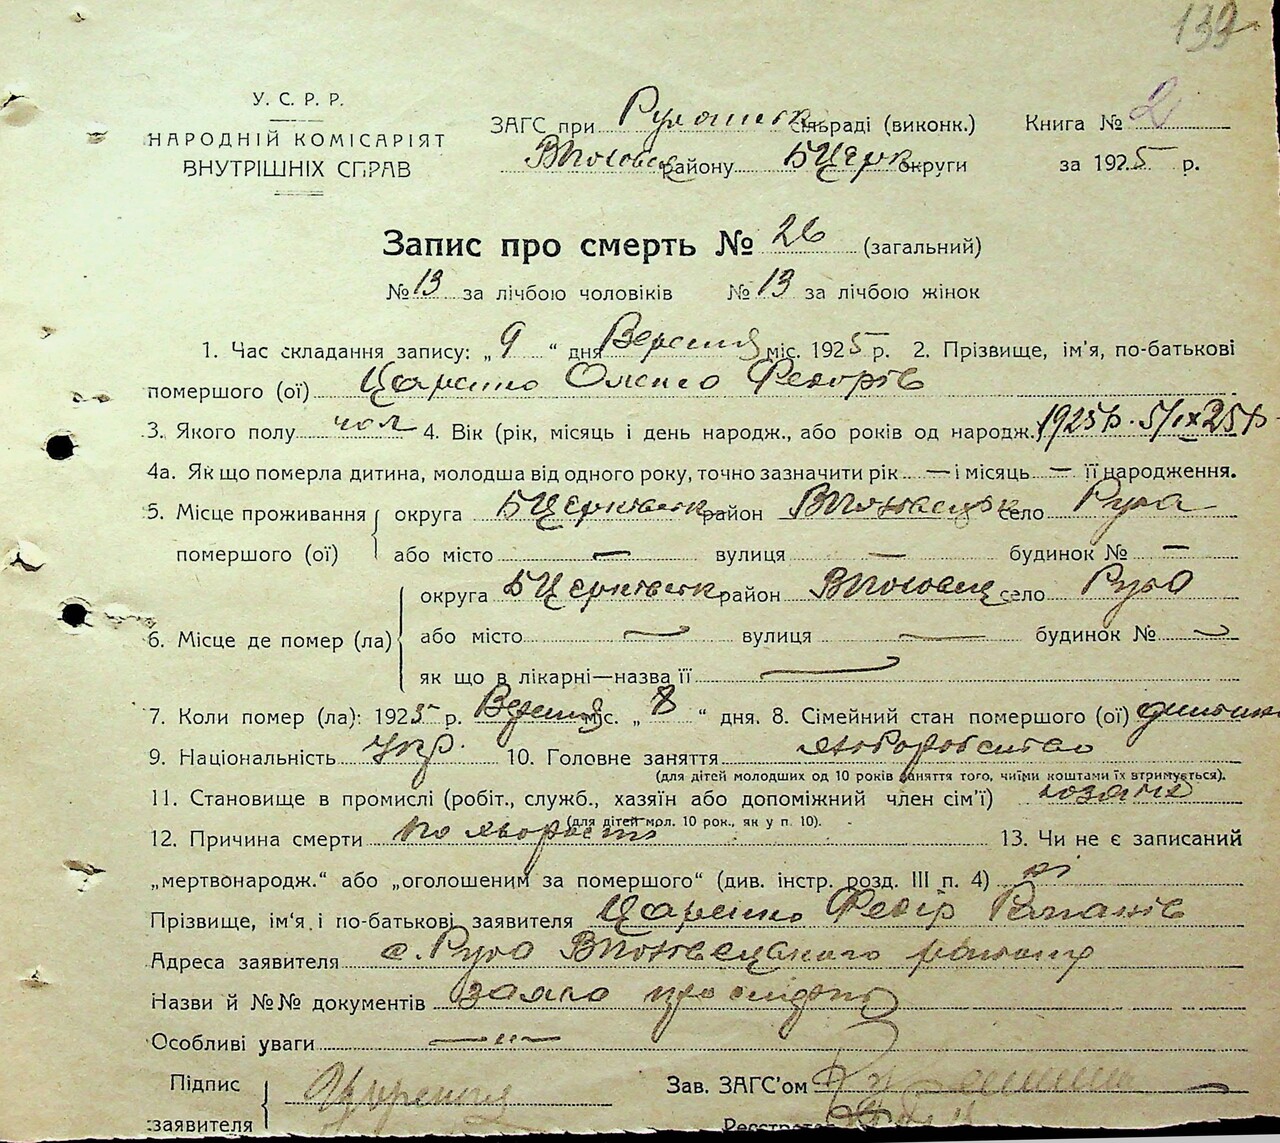 139
У. С. Р. Р.
НАРОДНІЙ КОМІСАРІЯТ
ВНУТРІШНІХ СПРАВ
ЗАГС при сільраді (виконк.) Книга № 2
району БЦерк округи за 1925 р.
Запис про смерть № 26 (загальний)
№ 13 за лічбою чоловіків № 13 за лічбою жінок
1. Час складання запису: „9“ дня Вересня міс. 1925 р. 2. Прізвище, ім'я, по-батькові
помершого (ої) Федорів
3. Якого полу чол 4. Вік (рік, місяць і день народж., або років од народж. 1925р. 5/ІХ 25р
4а. Як що померла дитина, молодша від одного року, точно зазначити рік — і місяць — її народження.
5. Місце проживання округа БЦерківськ район село Руда
помершого (ої) або місто — вулиця — будинок № —
округа БЦерківськ район село Руда
6. Місце де помер (ла) або місто — вулиця — будинок № —
як що в лікарні—назва її —
7. Коли помер (ла): 1925 р. Вересня міс. „8“ дня. 8. Сімейний стан помершого (ої) дитина
9. Національність Укр. 10. Головне заняття хліборобство
(для дітей молодших од 10 років заняття того, чиїми коштами їх втримується).
11. Становище в промислі (робіт., служб., хазяїн або допоміжний член сім'ї) хозяїн
(для дітей мол. 10 рок., як у п. 10).
12. Причина смерти по хворости 13. Чи не є записаний
„мертвонародж.“ або „оголошеним за помершого“ (див. інстр. розд. III п. 4) ні
Прізвище, ім'я і по-батькові заявителя Федір
Адреса заявителя с. Руда району
Назви й №№ документів
Особливі уваги — „ —
Підпис
заявителя
Зав. ЗАГС'ом
Реєстратор